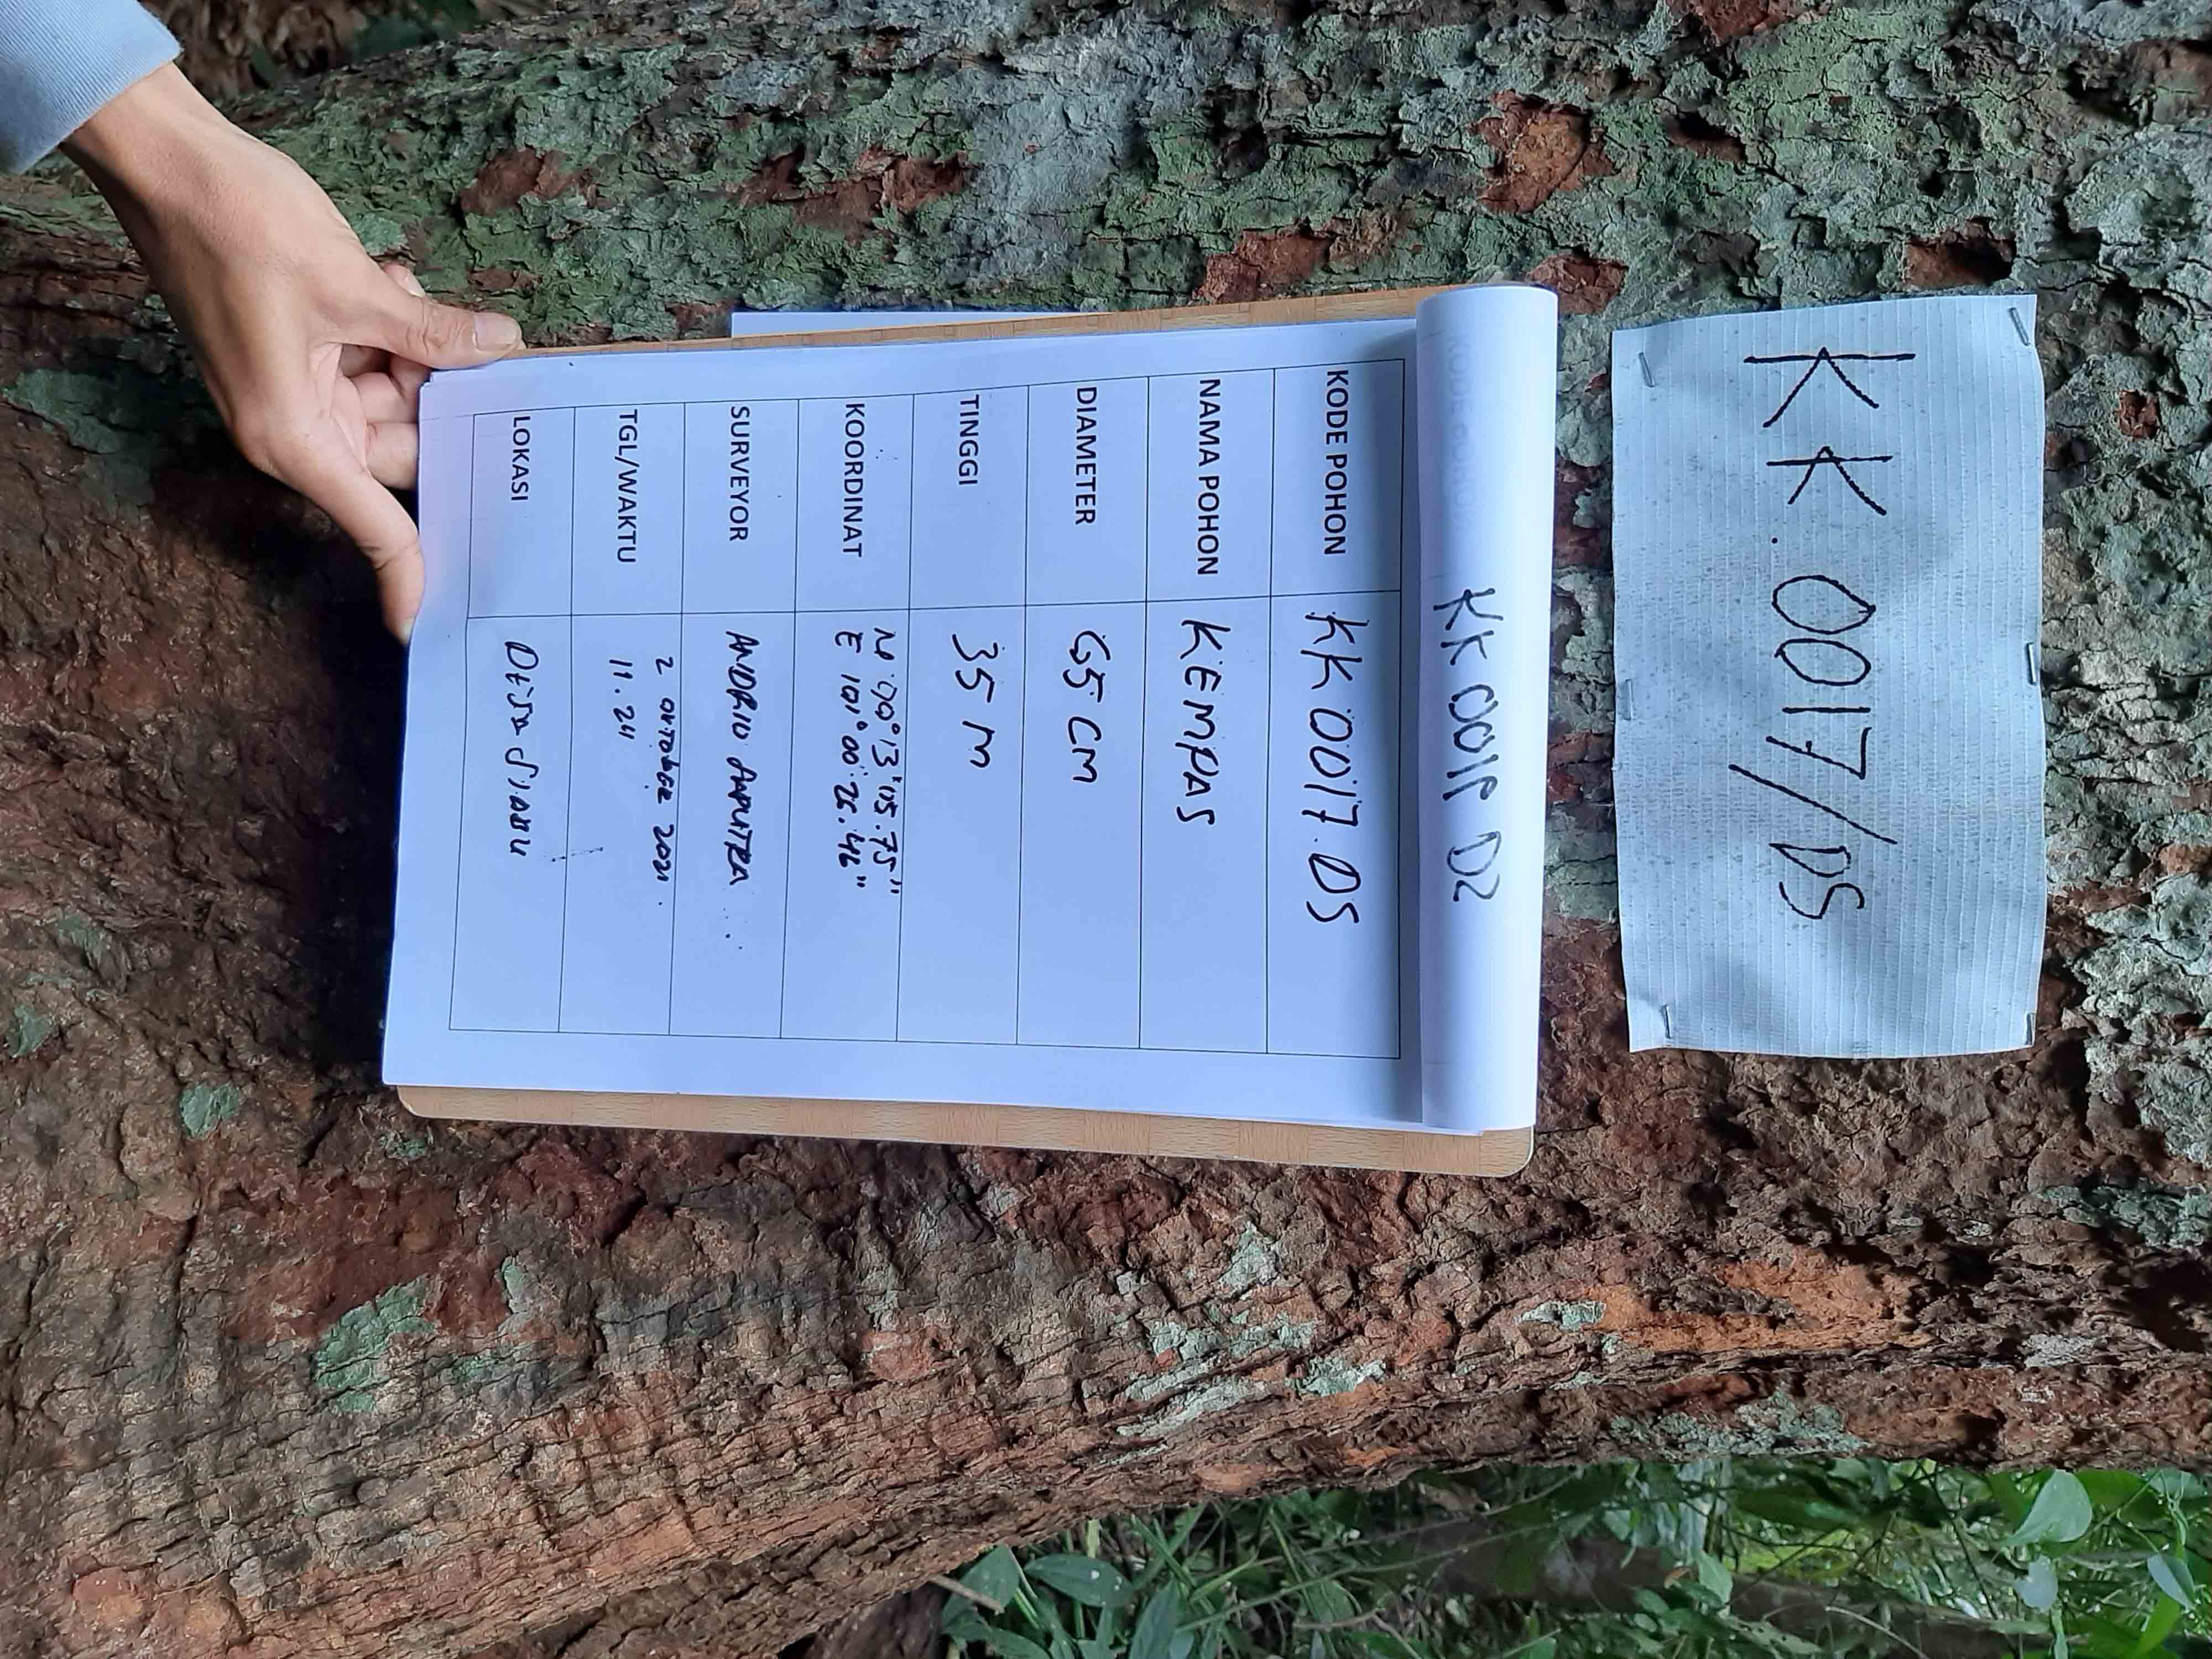 KK.0017/DS
KODE POHON KK 0017.DS
NAMA POHON KEMPAS
DIAMETER 65 CM
TINGGI 35 M
KOORDINAT N 00° 13' 15.75"
E 101° 00' 26.46"
SURVEYOR ANDRIO SAPUTRA
TGL/WAKTU 2 OKTOBER 2021
11.24
LOKASI DESA